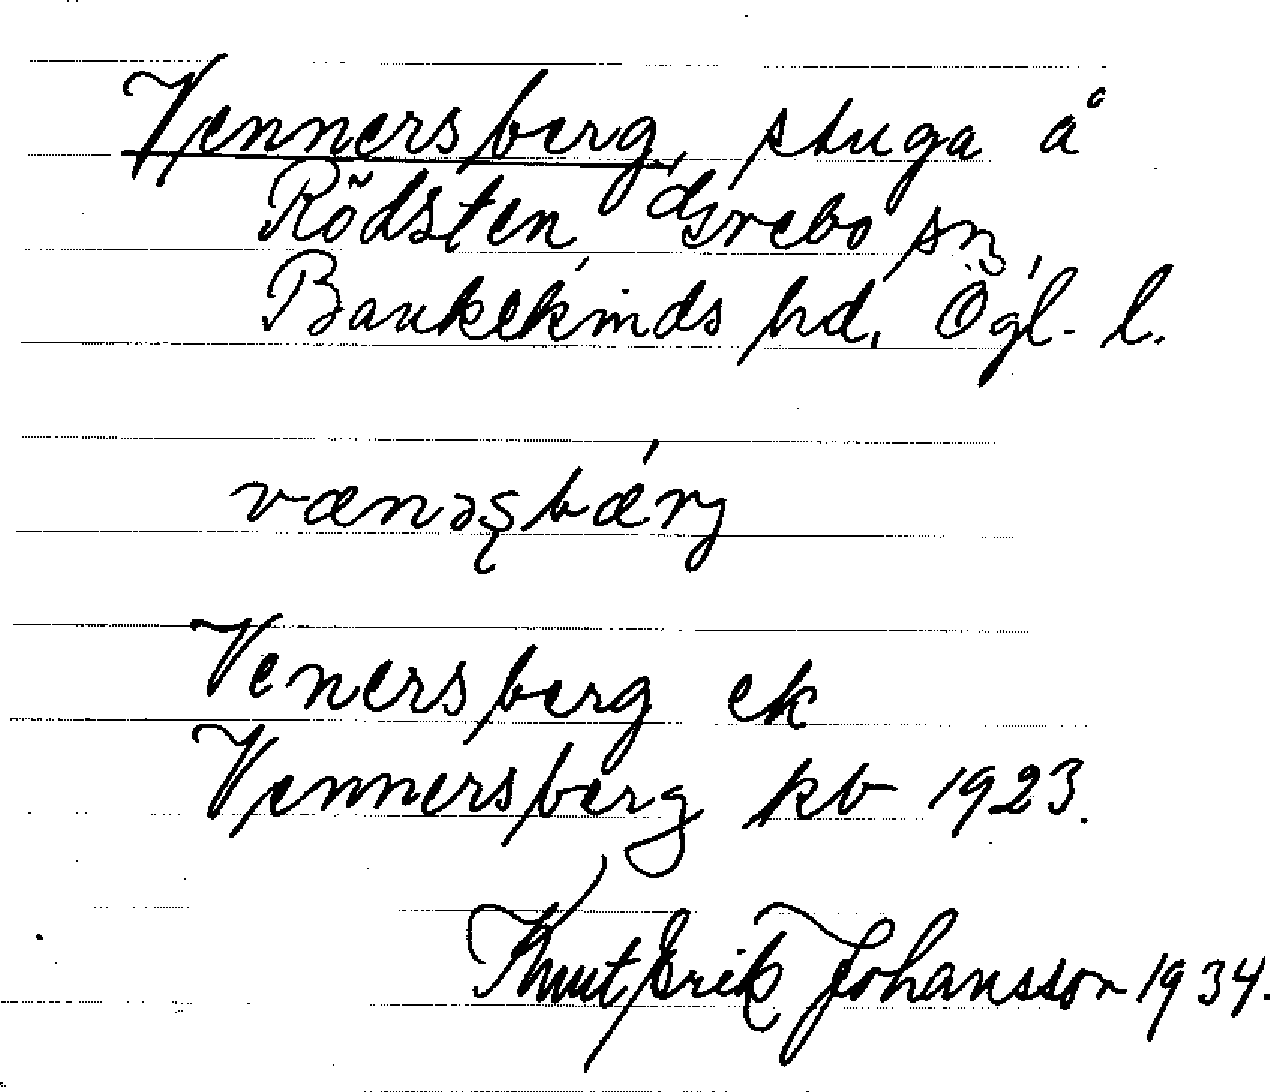 Vennersberg, stuga å
Rödsten, Grebo sn,
Bankekinds hd, Ögl. l.
vænəʂbǽrg
Venersberg ek
Vennersberg kb 1923.
Knut Erik Johansson 1934.